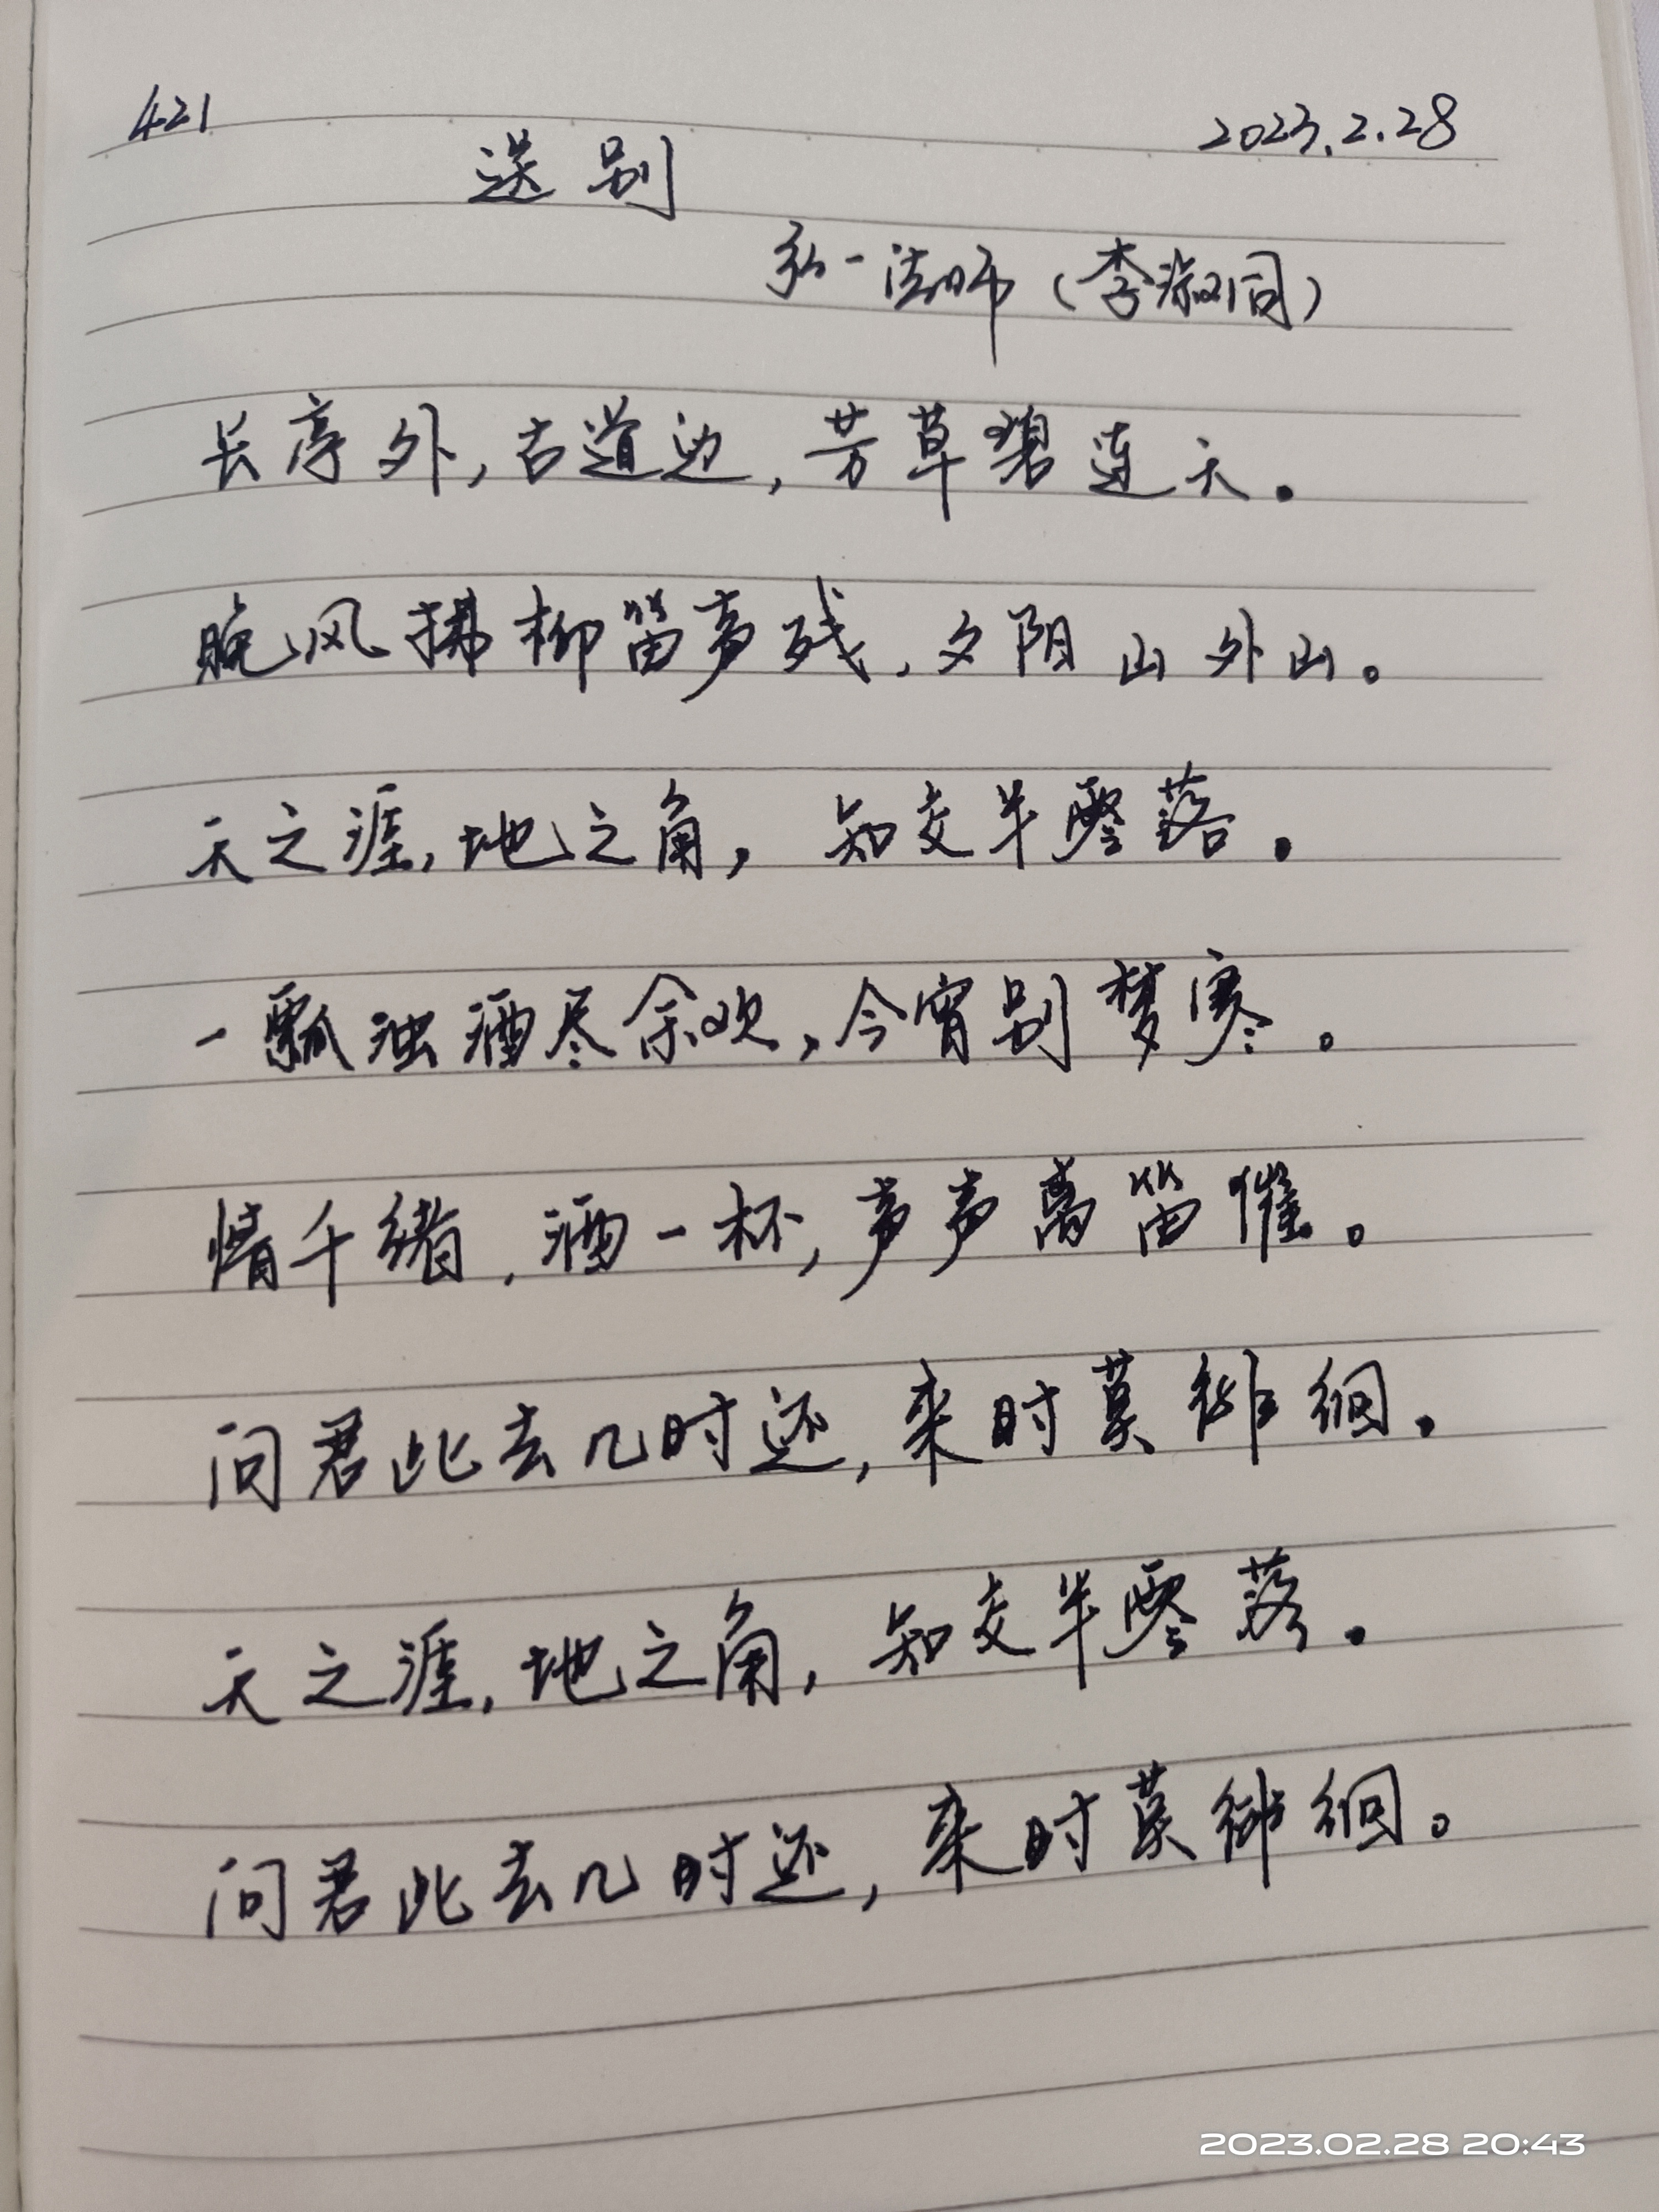 421
2023.2.28
送别
弘一法师（李淑同）
长亭外，古道边，芳草碧连天。
晚风拂柳笛声残，夕阳山外山。
天之涯，地之角，知交半零落。
一瓢浊酒尽余欢，今宵别梦寒。
情千绪，酒一杯，声声离笛催。
问君此去几时还，来时莫徘徊。
天之涯，地之角，知交半零落。
问君此去几时还，来时莫徘徊。
2023.02.28 20:43